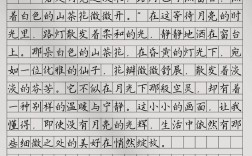 着白色的山茶花微微开。”在这等待月亮的时
光里，路灯散发着柔和的光，静静地洒在窗
上。那朵白色的山茶花，在昏黄的灯光下，宛
如一位优雅的仙子，花瓣微微舒展，散发着淡
淡的芬芳。它不似在月光下那般空灵，却有着
一种别样的温暖与宁静。这小小的画面，让我
懂得，即使没有月亮的光辉，生活中依然有那
些细微之处的美好在悄然绽放。